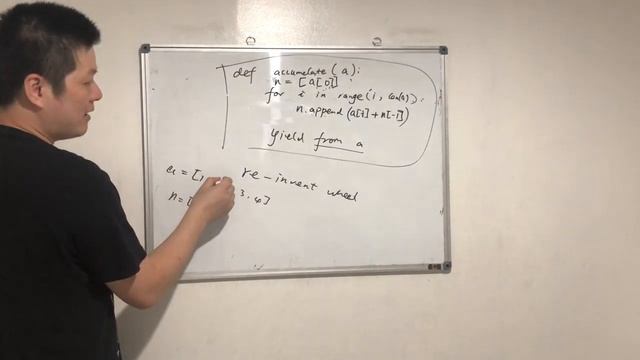 def accumulate(a):
n = [a[0]]
for i in range(1, len(a)):
n.append(a[i]+n[-1])
yield from a
a = [1,
re-invent wheel
n = [ 3, 6]